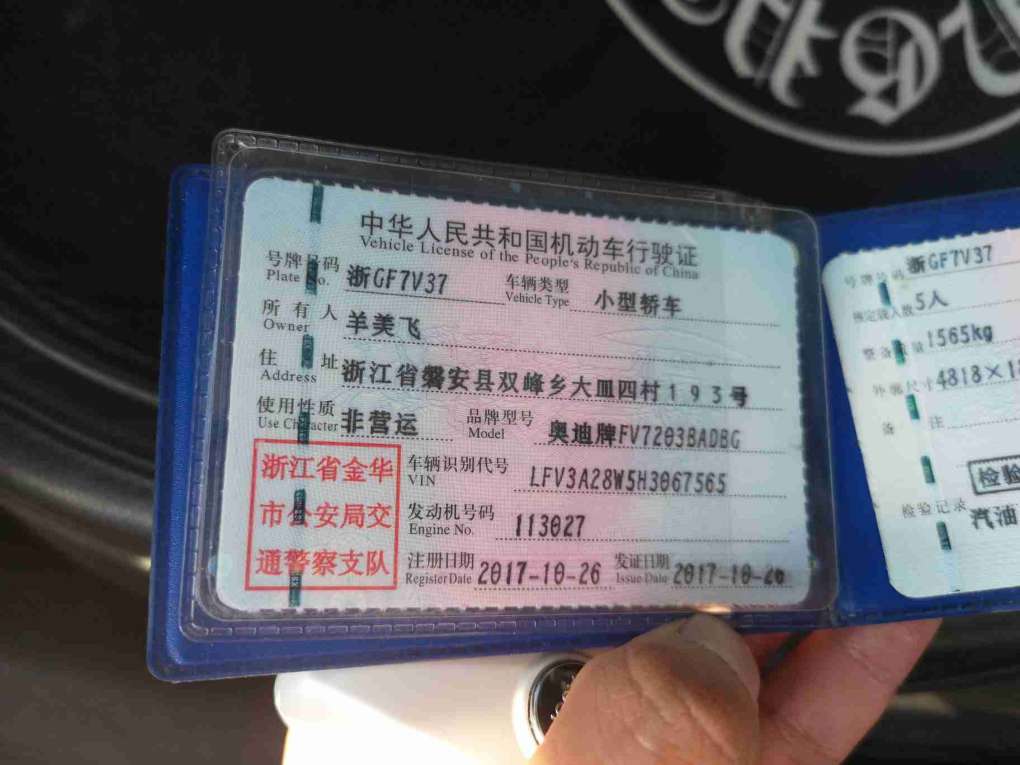 中华人民共和国机动车行驶证
Vehicle License of the People's Republic of China
号牌号码 浙GF7V37 车辆类型 小型轿车
Plate No. Vehicle Type
所有人 羊美飞
Owner
住址 浙江省磐安县双峰乡大皿四村193号
Address
使用性质 非营运 品牌型号 奥迪牌FV7203BADBG
Use Character Model
浙江省金华
市公安局交
通警察支队
车辆识别代号 LFV3A28W5H3067565
VIN
发动机号码 113027
Engine No.
注册日期 2017-10-26 发证日期 2017-10-26
Register Date Issue Date
号牌号码 浙GF7V37
核定载人数 5人
整备质量 1565kg
外廓尺寸 4818×18
备注
检验
检验记录 汽油